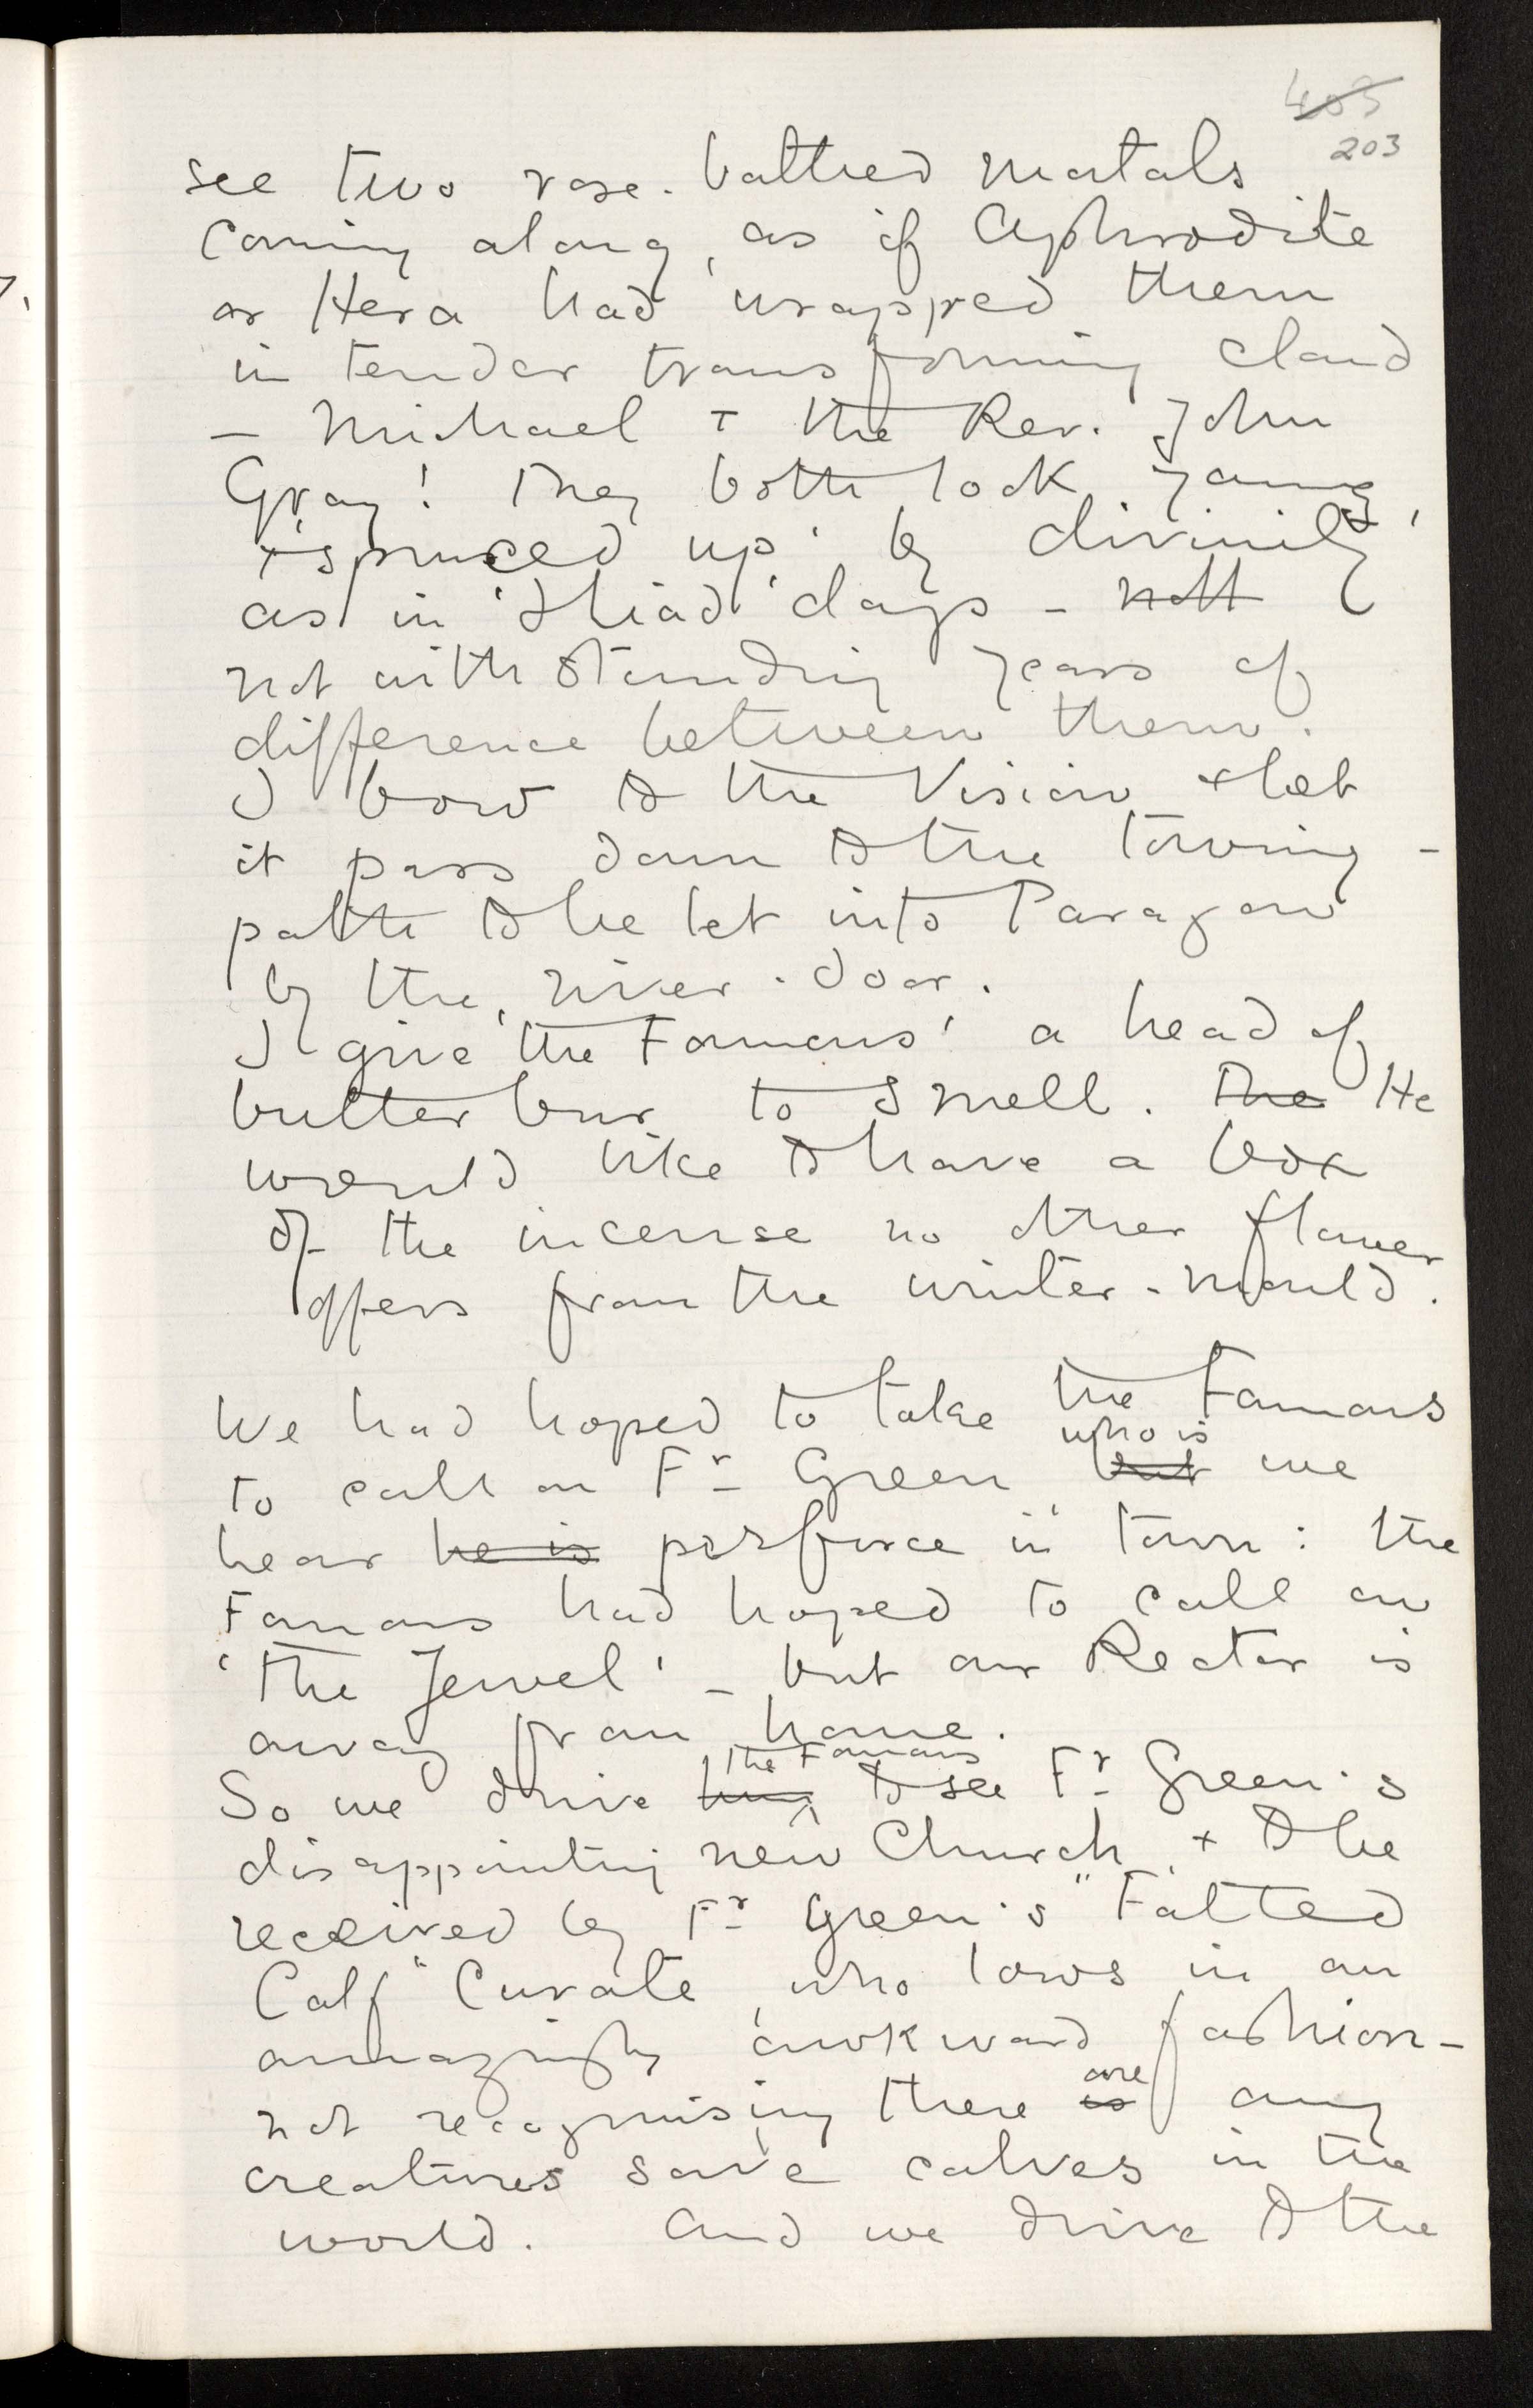 ~~405~~
203
see two rose-bathed mortals
coming along, as if Aphrodite
or Hera had wrapped them
in tender transforming cloud
— Michael + the Rev. John
Gray! They both look young,
+ 'spruced up' by divinity
as in 'Iliad' days - ~~nott~~
not withstanding years of
difference between them.
I bow to the Vision + let
it pass down to the towing-
path to be let into Paragon
by the river-door.
I give 'the Famous' a head of
butter bur to smell. ~~The~~ He
would like to have a box
of the incense no other flower
offers from the winter-mould.
We had hoped to take the Famous
who is
to call on Fr Green ~~but~~ we
hear ~~he is~~ perforce in town: the
Famous had hoped to call on
'The Jewel' - but our Rector is
away from home.
the Famous
So we drive ~~him~~ to see Fr Green's
disappointing new Church, + to be
received by Fr Green's "Fatted
Calf" Curate, who lows in an
amazingly awkward fashion -
are
not recognising there ~~is~~ any
creatures save calves in the
world. And we drive to the